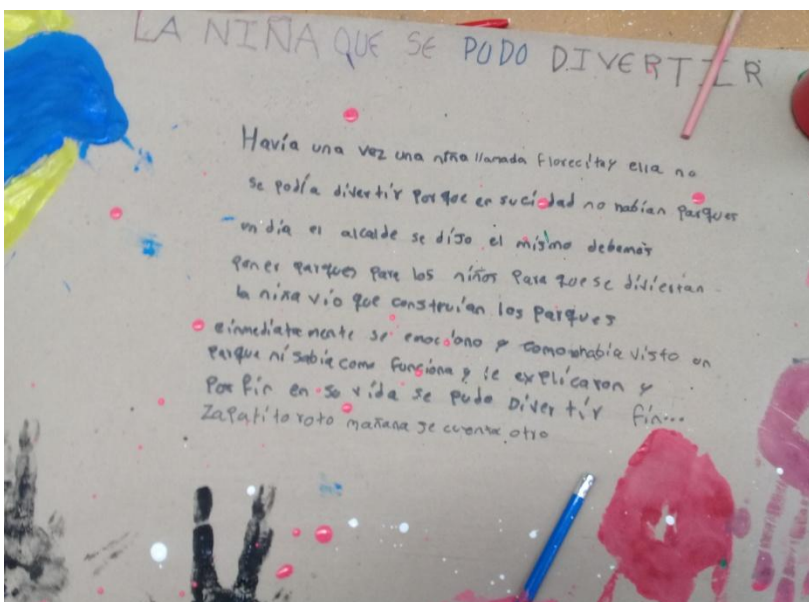 LA NIÑA QUE SE PUDO DIVERTIR
Havía una vez una niña llamada Florecita y ella no
se podía divertir porque en su ciudad no habían parques
un día el alcalde se dijo el mismo debemos
poner parques para los niños para que se diviertan
la niña vio que construían los parques
einmediatamente se emociono y como no había visto un
parque ni sabia como funciona y le explicaron y
por fin en su vida se pudo Divertir fin...
Zapatito roto mañana se cuenta otro